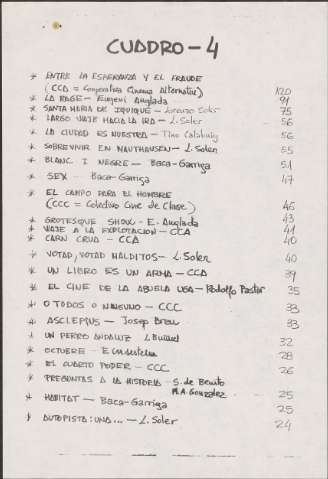 CUADRO - 4
* ENTRE LA ESPERANZA Y EL FRAUDE
(CCA = Cooperativa Cinema Alternatiu) 120
* LA RAGE - Eugeni Anglada 91
* SANTA MARIA DE IQUIQUE - Lorenzo Soler 75
* LARGO VIAJE HACIA LA IRA - L. Soler 56
* LA CIUDAD ES NUESTRA - Tino Calabuig 56
* SOBREVIVIR EN MAUTHAUSEN - L. Soler 55
* BLANC I NEGRE - Baca-Garriga 51
* SEX - Baca-Garriga 47
* EL CAMPO PARA EL HOMBRE
(CCC = Colectivo Cine de Clase) 46
* GROTESQUE SHOW - E. Anglada 43
* VIAJE A LA EXPLOTACION - CCA 41
* CARN CRUA - CCA 40
* VOTAD, VOTAD MALDITOS - L. Soler 40
* UN LIBRO ES UN ARMA - CCA 39
* EL CINE DE LA ABUELA - Rodolfo Pastor 35
* O TODOS O NINGUNO - CCC 33
* ASCLEPIUS - Josep Breu 33
* UN PERRO ANDALUZ L. Buñuel 32
* OCTUBRE - Eisenstein 28
* EL CUARTO PODER - CCC 26
* PREGUNTAS A LA HISTORIA - S. de Benito
M.A. Gonzalez 25
* HABITAT - Baca-Garriga 25
* AUTOPISTA: UNA... - L. Soler 24